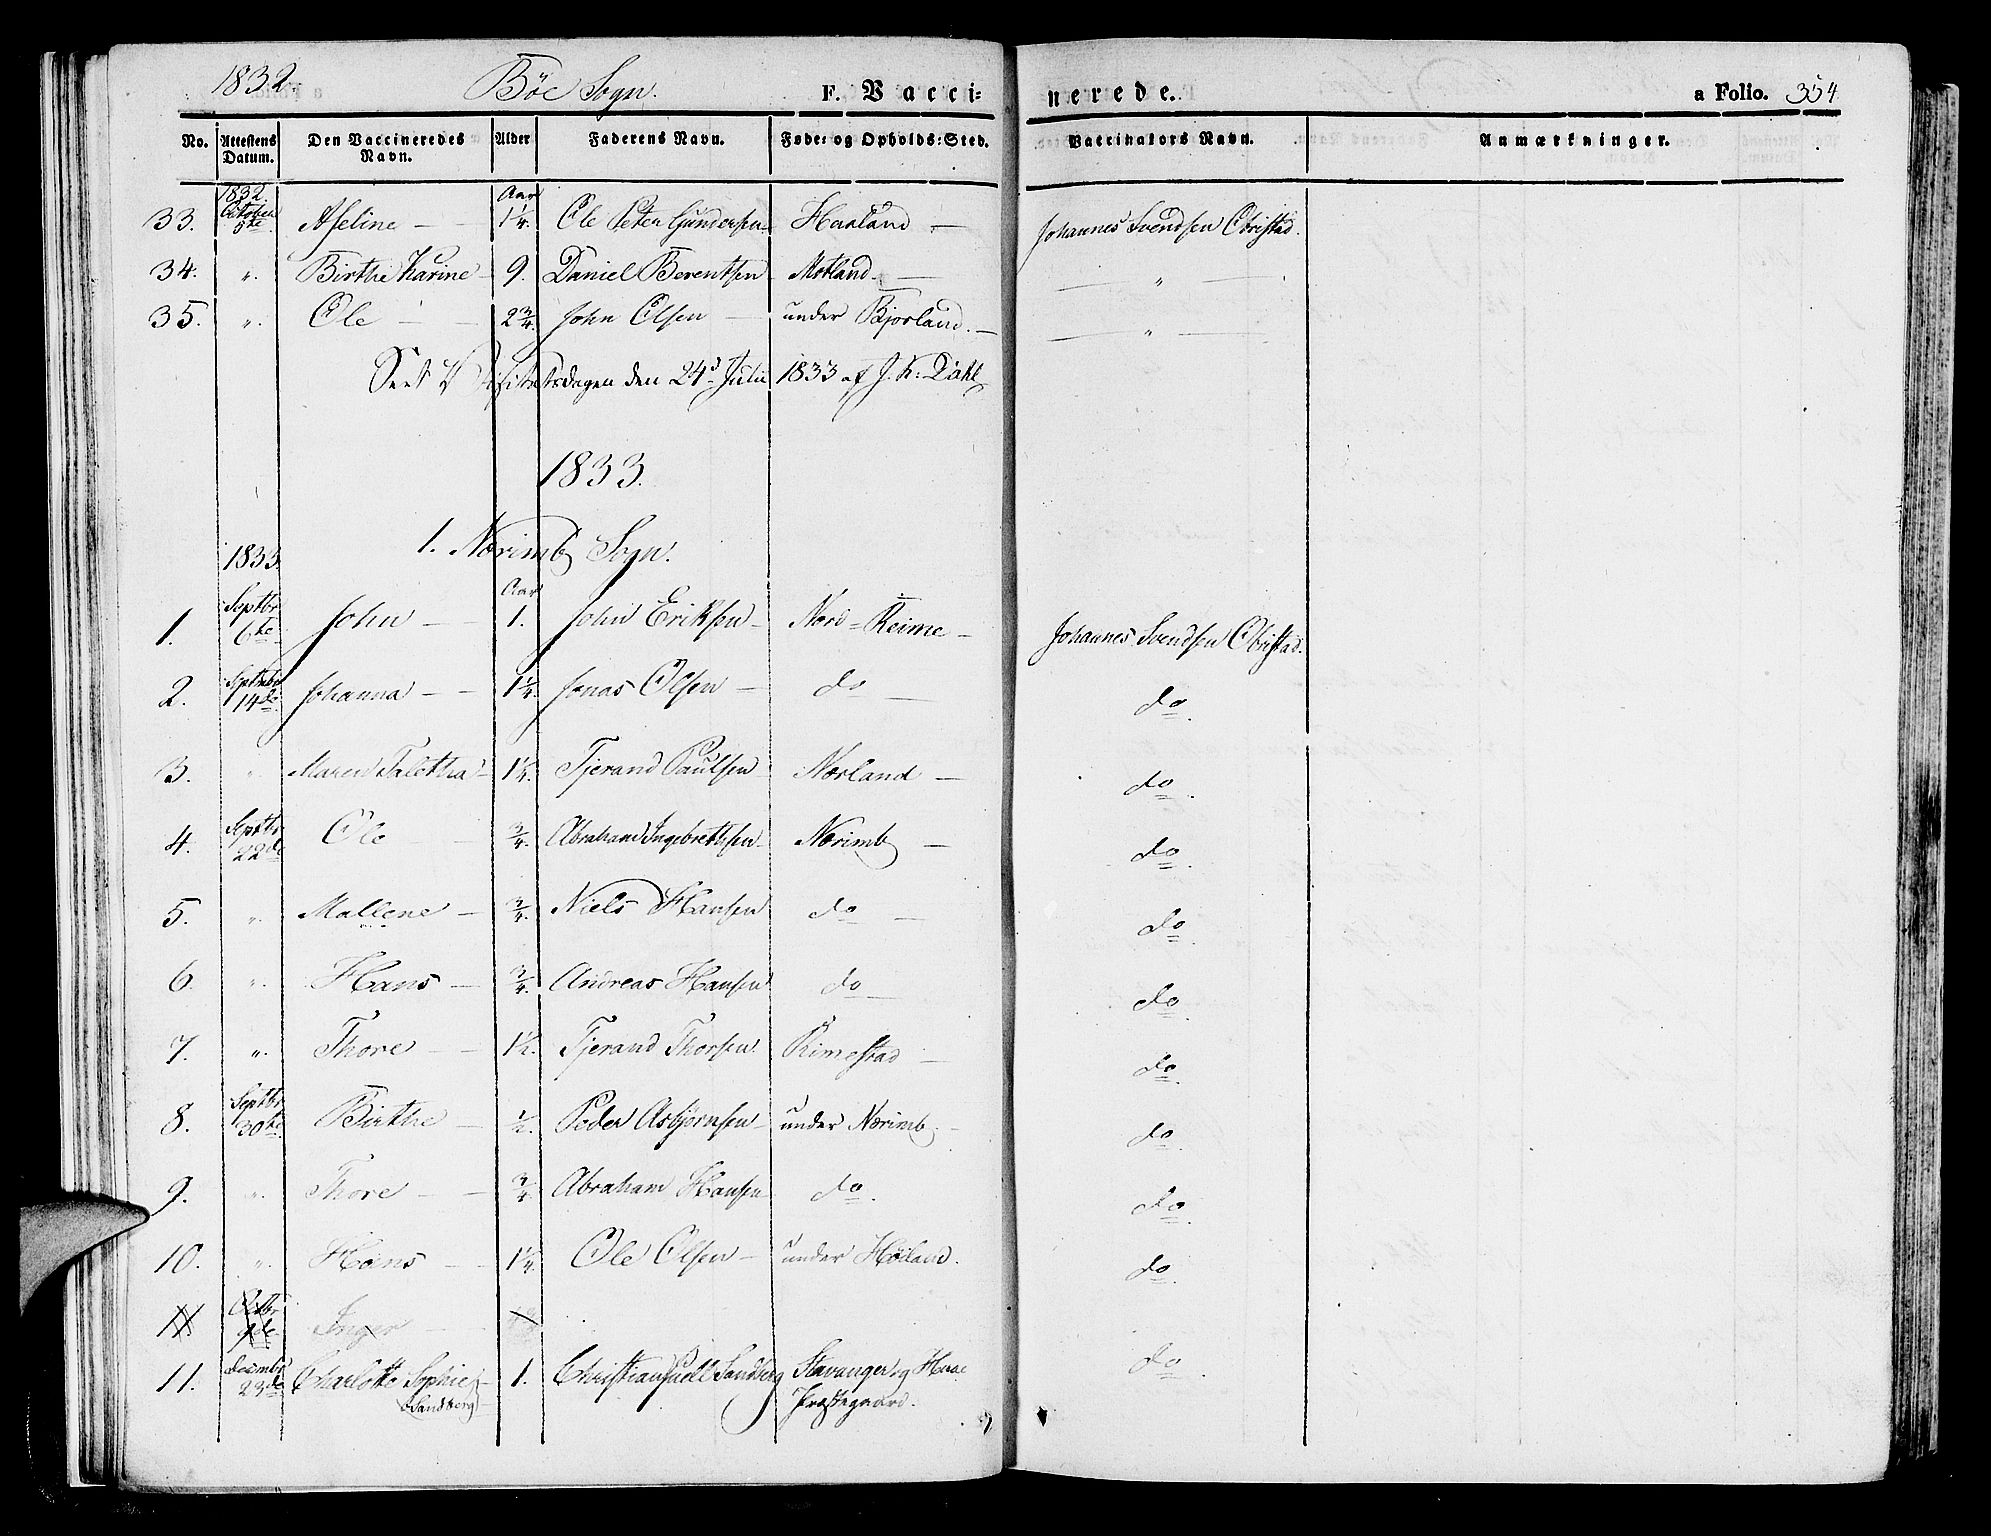 1832. Böe Sogn. F. Vaccinerede. a Folio. 354
No. Attestens Datum. Den Vaccineredes Navn. Alder Faderens Navn. Føde- og Opholds-Sted. Vaccinators Navn. Anmærkninger.
1832 Aar
33. October 5te Aseline 1¼. Ole Peter Gundersen Haaland Johannes Svendsen Obrestad.
34. ". Birthe Karine 9. Daniel Berentsen Motland "
35. ". Ole 2¾. John Olsen under Bjorland. "
Seet Visitatsdagen den 24d Julii 1833 af J. K: Dahl
1833.
1. Nærimb Sogn.
1833. Aar
1. Septbr 6te John 1. John Eriksen Nord-Reime Johannes Svendsen Obrestad.
2. Septembr 14de Johanna 1¼. Jonas Olsen do do.
3. ". Maren Taletha 1¼. Tjerand Paulsen Nærland do.
4. Septbr 22de Ole ¾. Abraham Ingebrethsen Nærimb do.
5. ". Mallene ¾. Niels Hansen do do.
6. ". Hans ¾. Andreas Hansen do do.
7. ". Thore 1½. Tjerand Thorsen. Rimestad do.
8. Septbr 30te Birthe ½. Peder Asbjørnsen under Nærimb. do.
9. ". Thore ¾ Abraham Hansen do. do.
10. ". Hans 1¼. Ole Olsen under Høiland. do.
11 Octbr Inger
11. Decembr 23de Charlotte Sophie 1. Christian Juell Sandberg Stavanger og Haae do.
(Sandberg) Præstegaard.